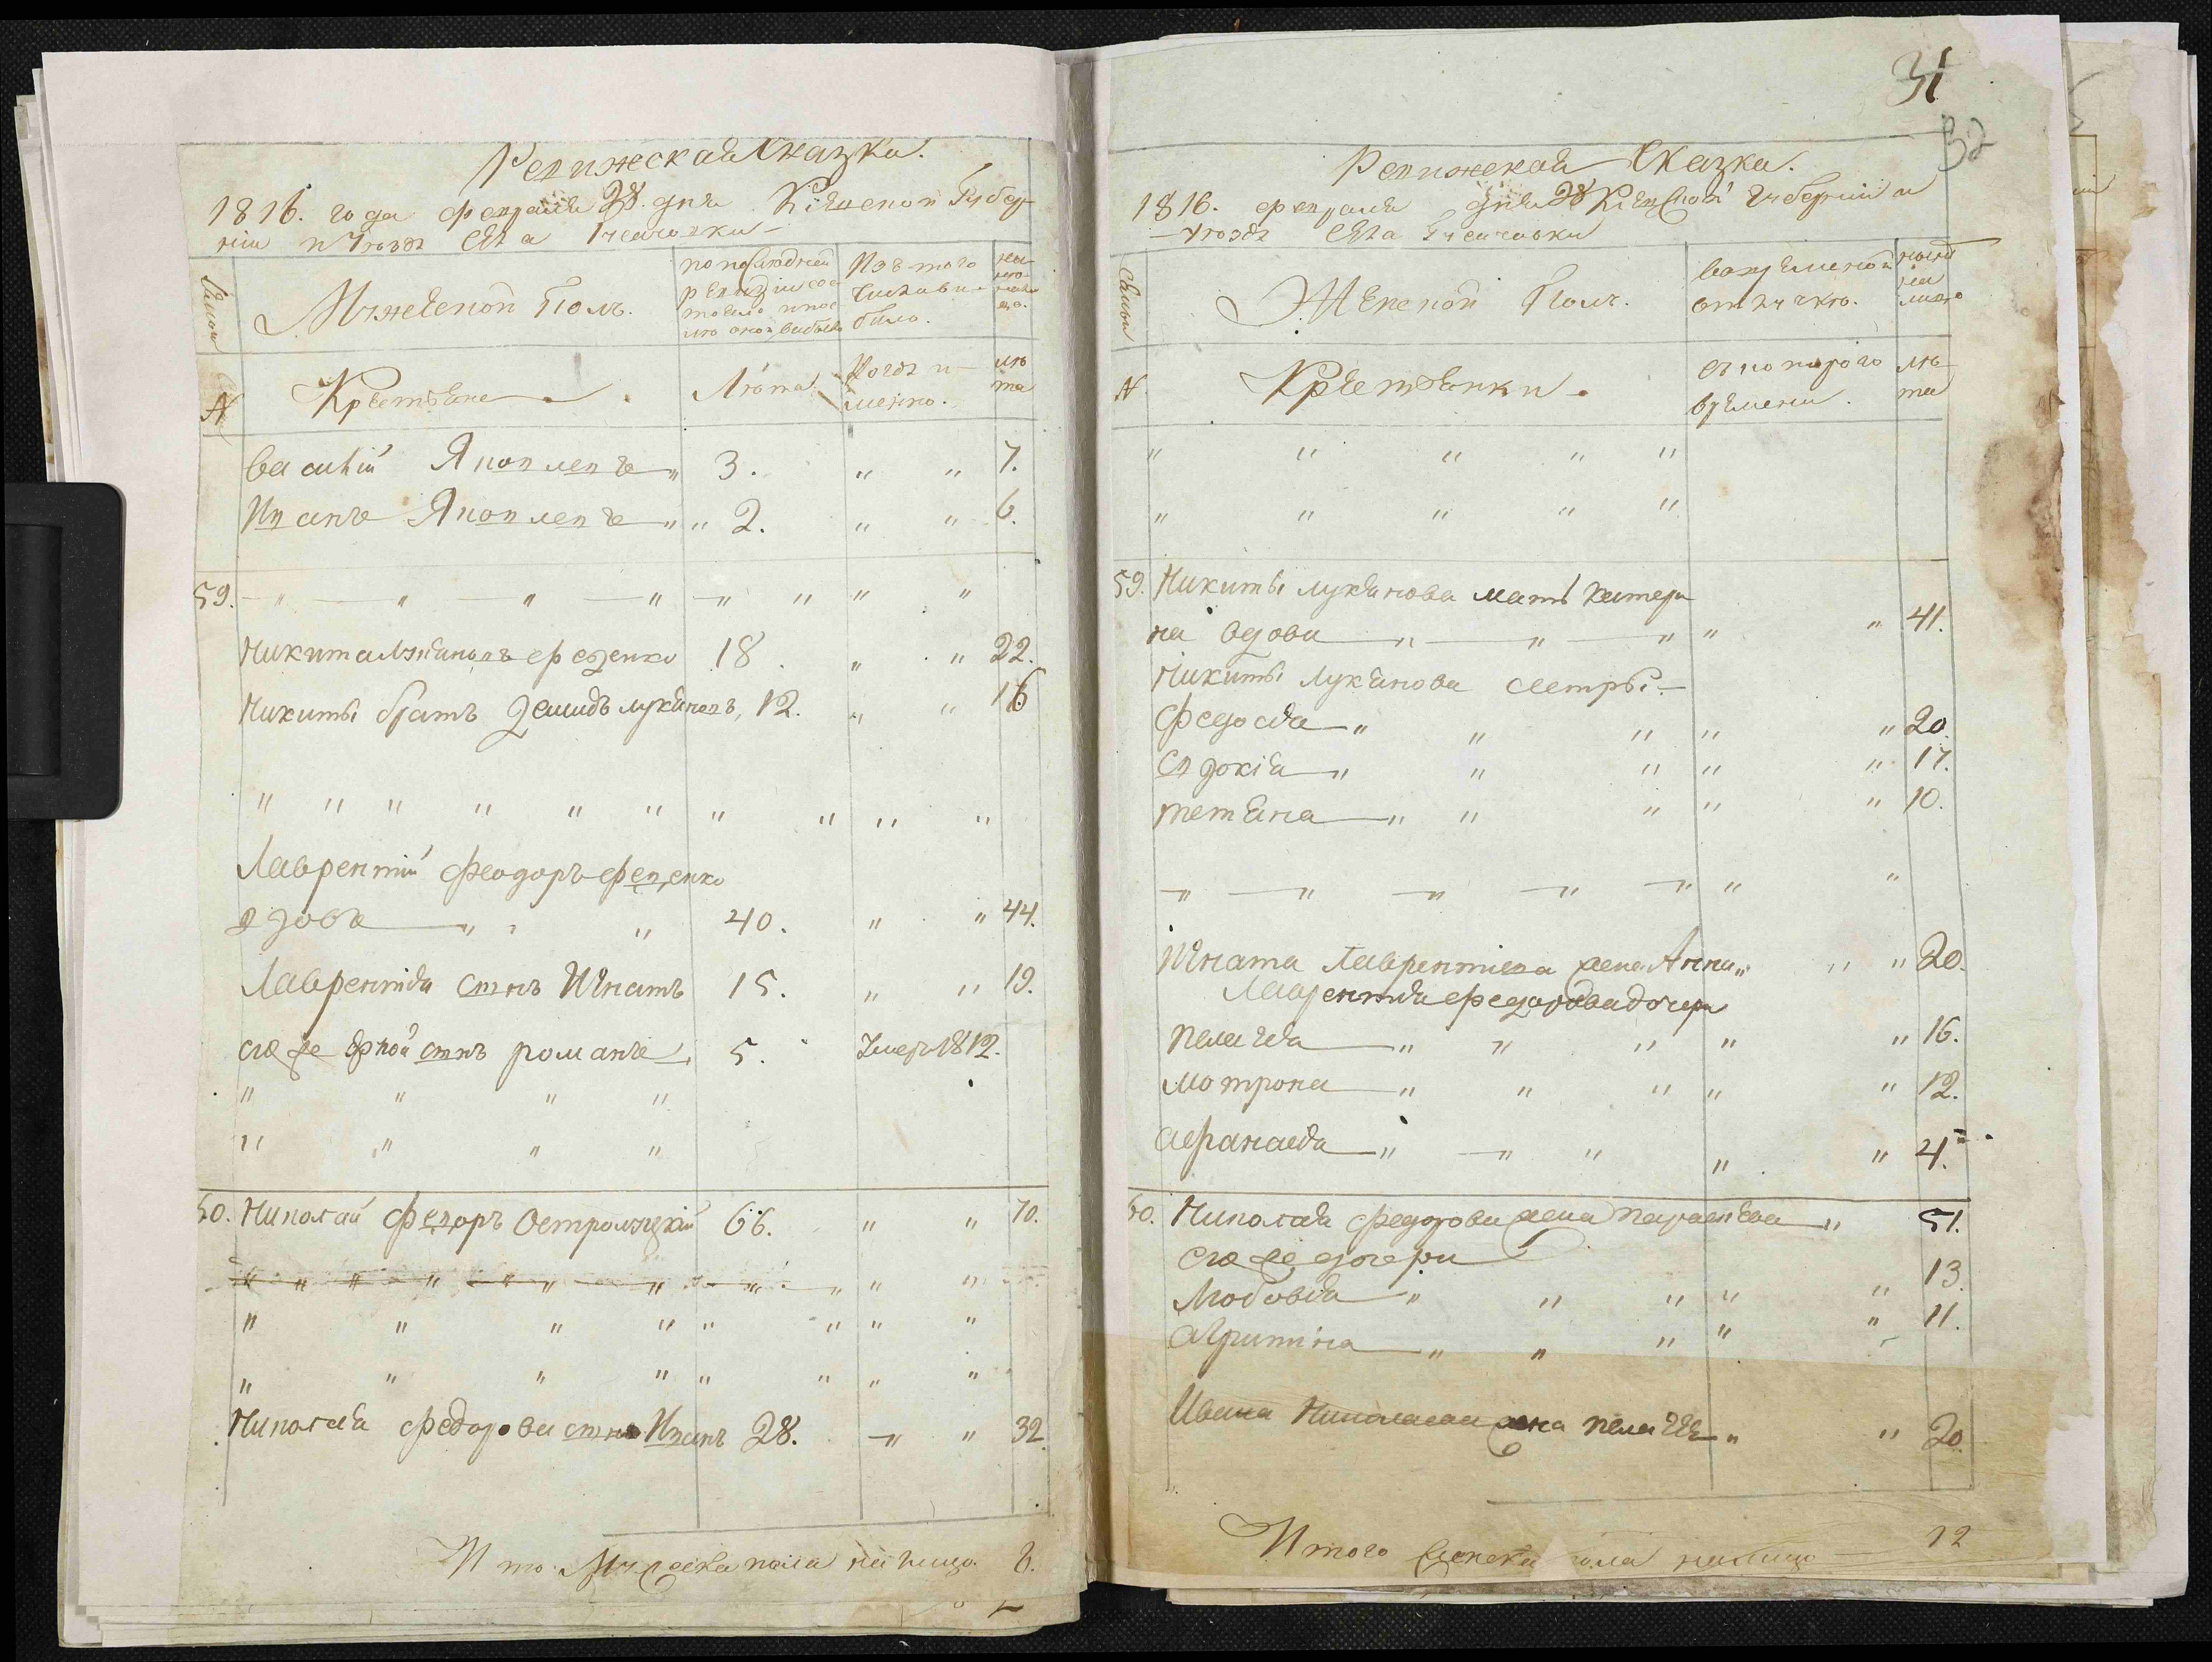 Ревижская Сказка.
1816. года февраля 28. дня Кіевской Губер-
ніи и Уезда Села Гусачовки
Семьи
Мужеской Полъ.
по последней
ревизии сос-
тояло и пос-
ле оной выбыло
Изъ того
числа вы-
было.
ны-
не на-
ли-
цо.
№
Крестьяне
Лета.
Когда и-
менно.
ле
та
Василій Яковлевъ " 3. " " 7.
Иванъ Яковлевъ " " 2. " " 6.
59. " " " " " " " "
Никита Лукьяновъ Феденко 18. " " 22.
Никиты братъ Демидъ Лукьяновъ, 12. " " 16
" " " " " " " " " "
Лаврентій Феодоръ
вдовъ " " " 40. " " 44.
Лаврентія сынъ Игнатъ 15. " " 19.
его же другой сынъ романъ 5. Умеръ 1812.
" " " "
" " " "
60. Николай Федоръ Островскій 66. " " 70.
" " " " " " " " " " "
" " " " " " " "
" " " " " " " "
Николая Федорова сынъ Иванъ 28. " " 32.
Ито. Мужеска пола на лицо 8.
31
32
Ревижская Сказка.
1816. февраля дня 28 Кіевской Губерніи и
Уезда Села Гусачовки
Семьи
Женской Полъ.
во временной
отлучке.
ныне
на
лицо
№
Крестьянки.
съ которого
времени.
ле
та
" " " " "
" " " " "
59. Никиты Лукьянова мать Катери
на вдова " " " " " 41.
Никиты Лукьянова сестры
Федосья " " " " " 20.
Евдокія " " " " " 17.
Тетьяна " " " " " 10.
" " " " " " "
Игната Лаврентиева жена Анна " " " 20.
Лаврентия Федорова дочери
Пелагея " " " " " 16.
Мотрона " " " " " 12.
Афанасья " " " " " 4.
60. Николая Федорова жена Параскева " 51.
его же дочери
Любовья " " " " " 13.
Агрипина " " " " " 11.
Ивана Николаева жена Пелагея " " 20.
Итого Женска пола налицо 12